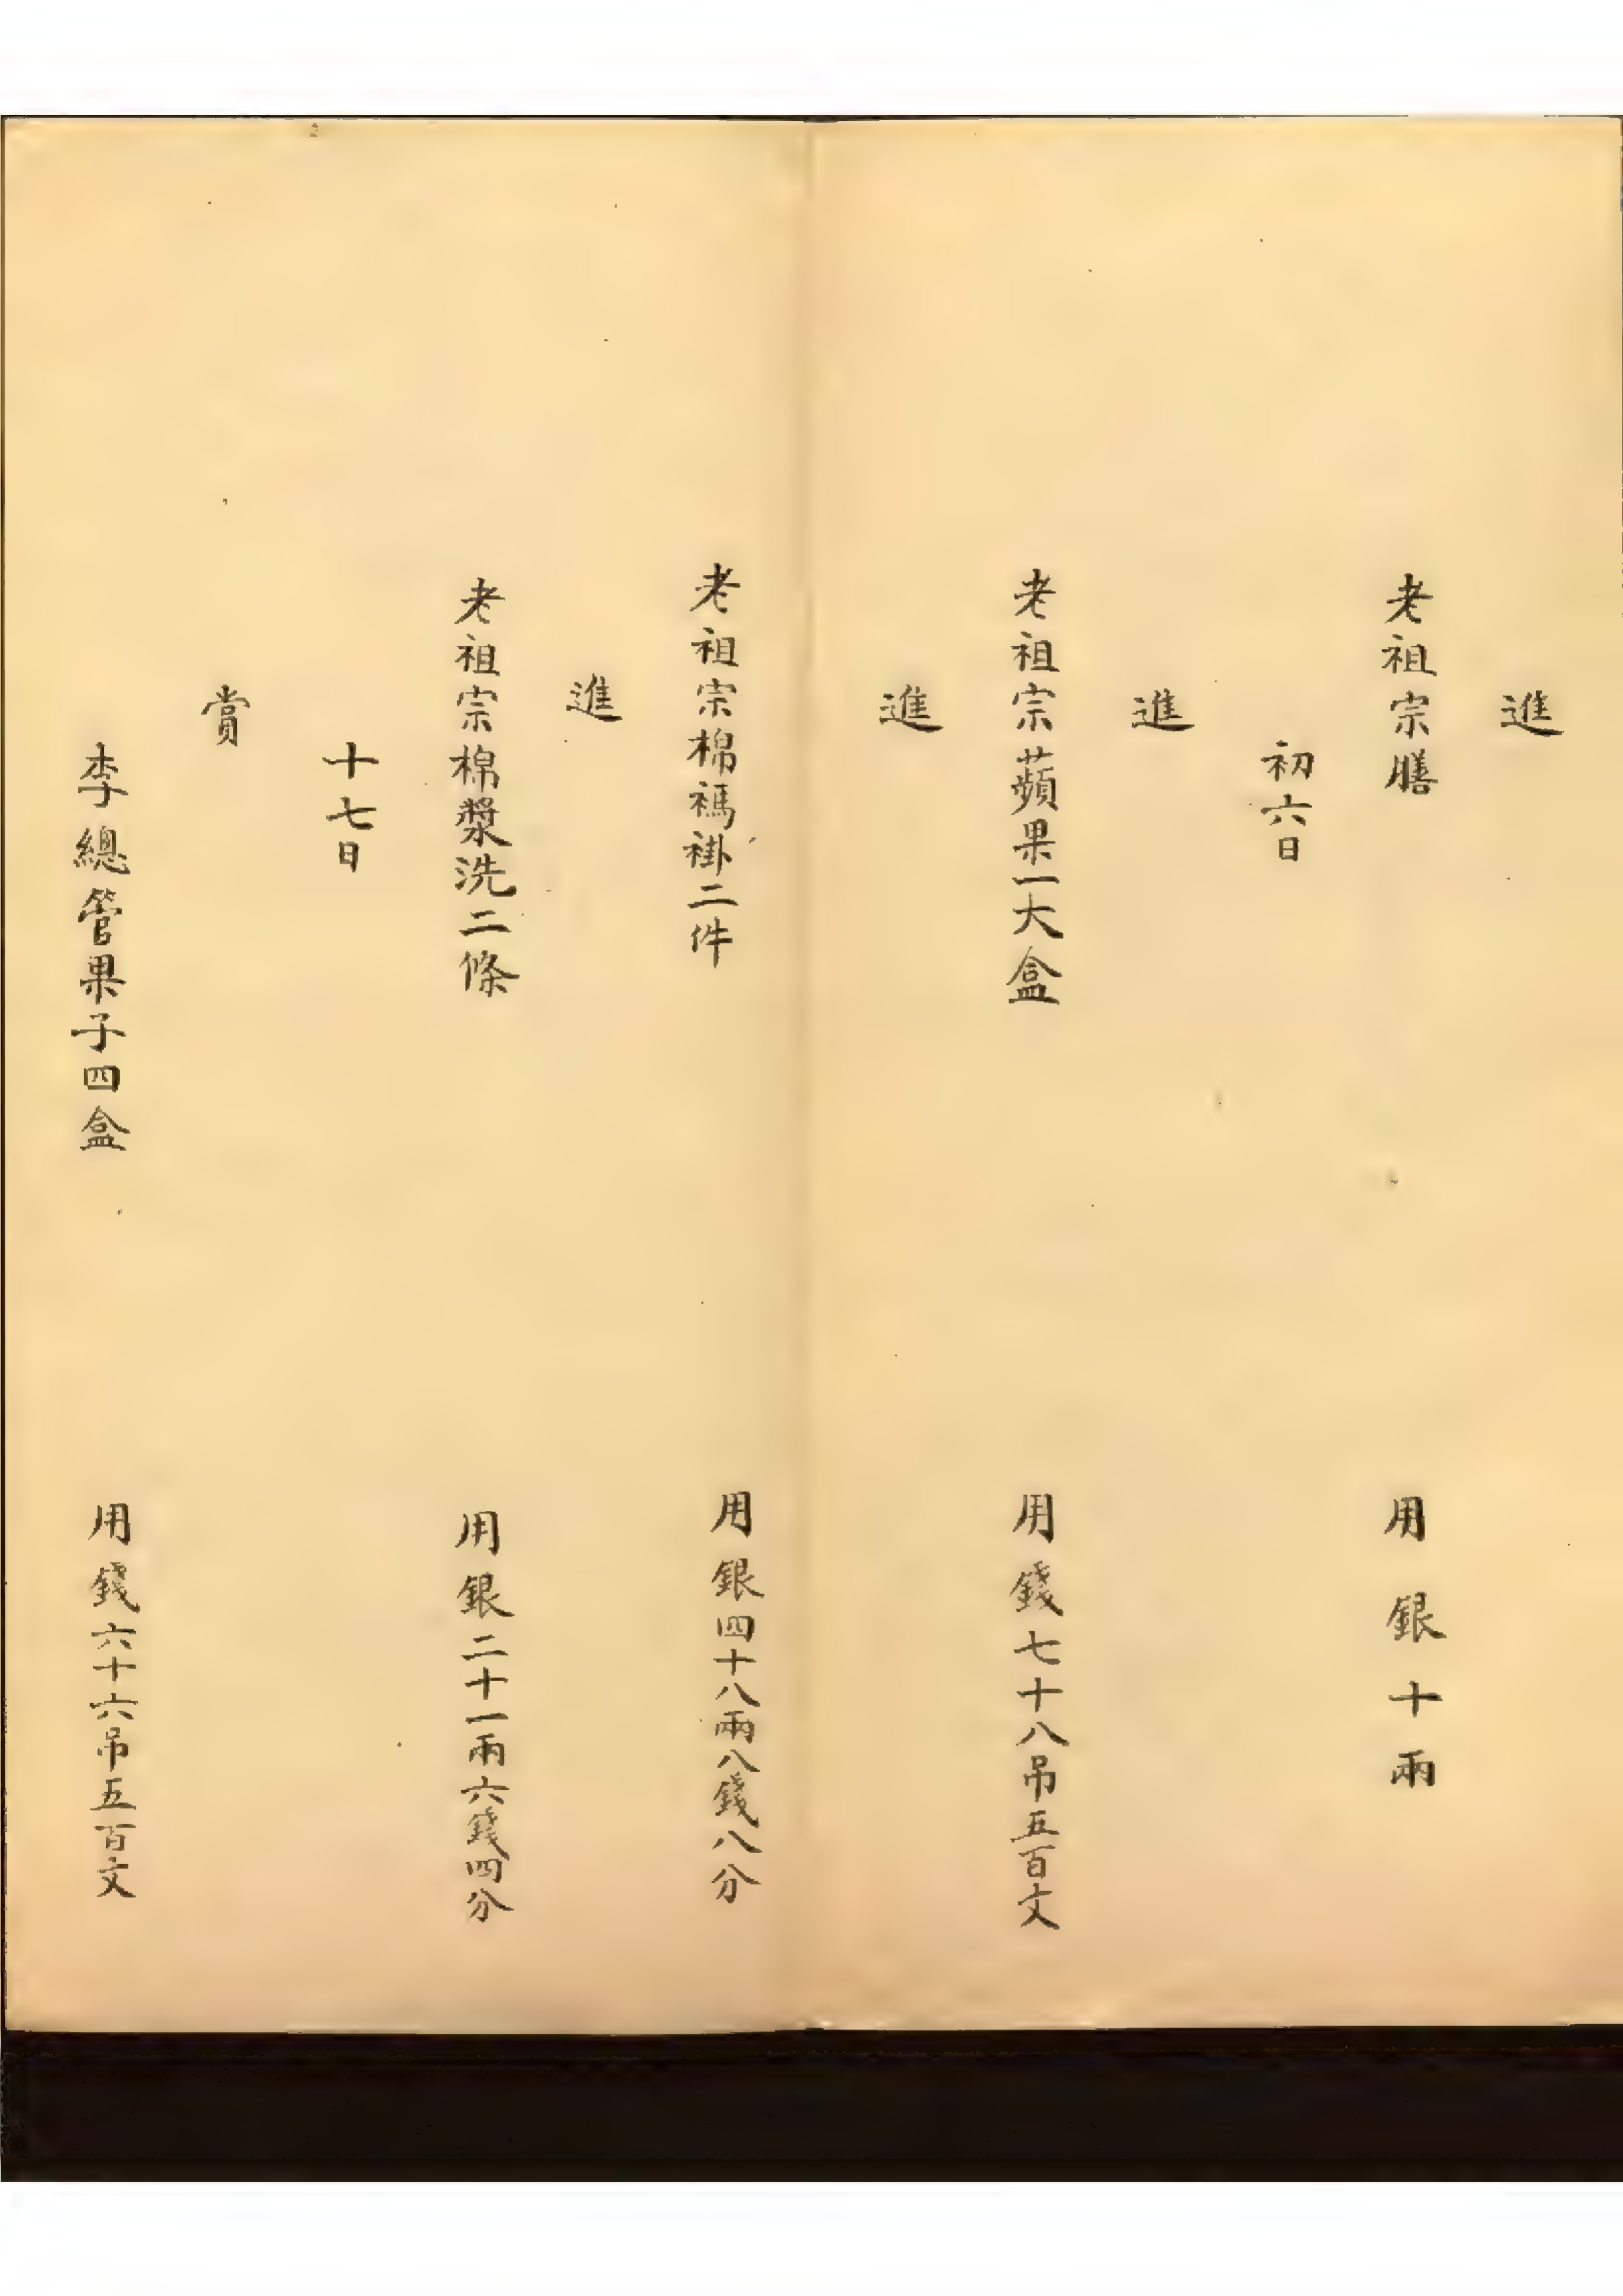 進
老祖宗膳 用銀十兩
初六日
進
老祖宗蘋果一大盒 用錢七十八吊五百文
進
老祖宗棉褂二件 用銀四十八兩八錢八分
進
老祖宗棉漿洗二條 用銀二十一兩六錢四分
十七日
賞
李總管果子四盒 用錢六十六吊五百文